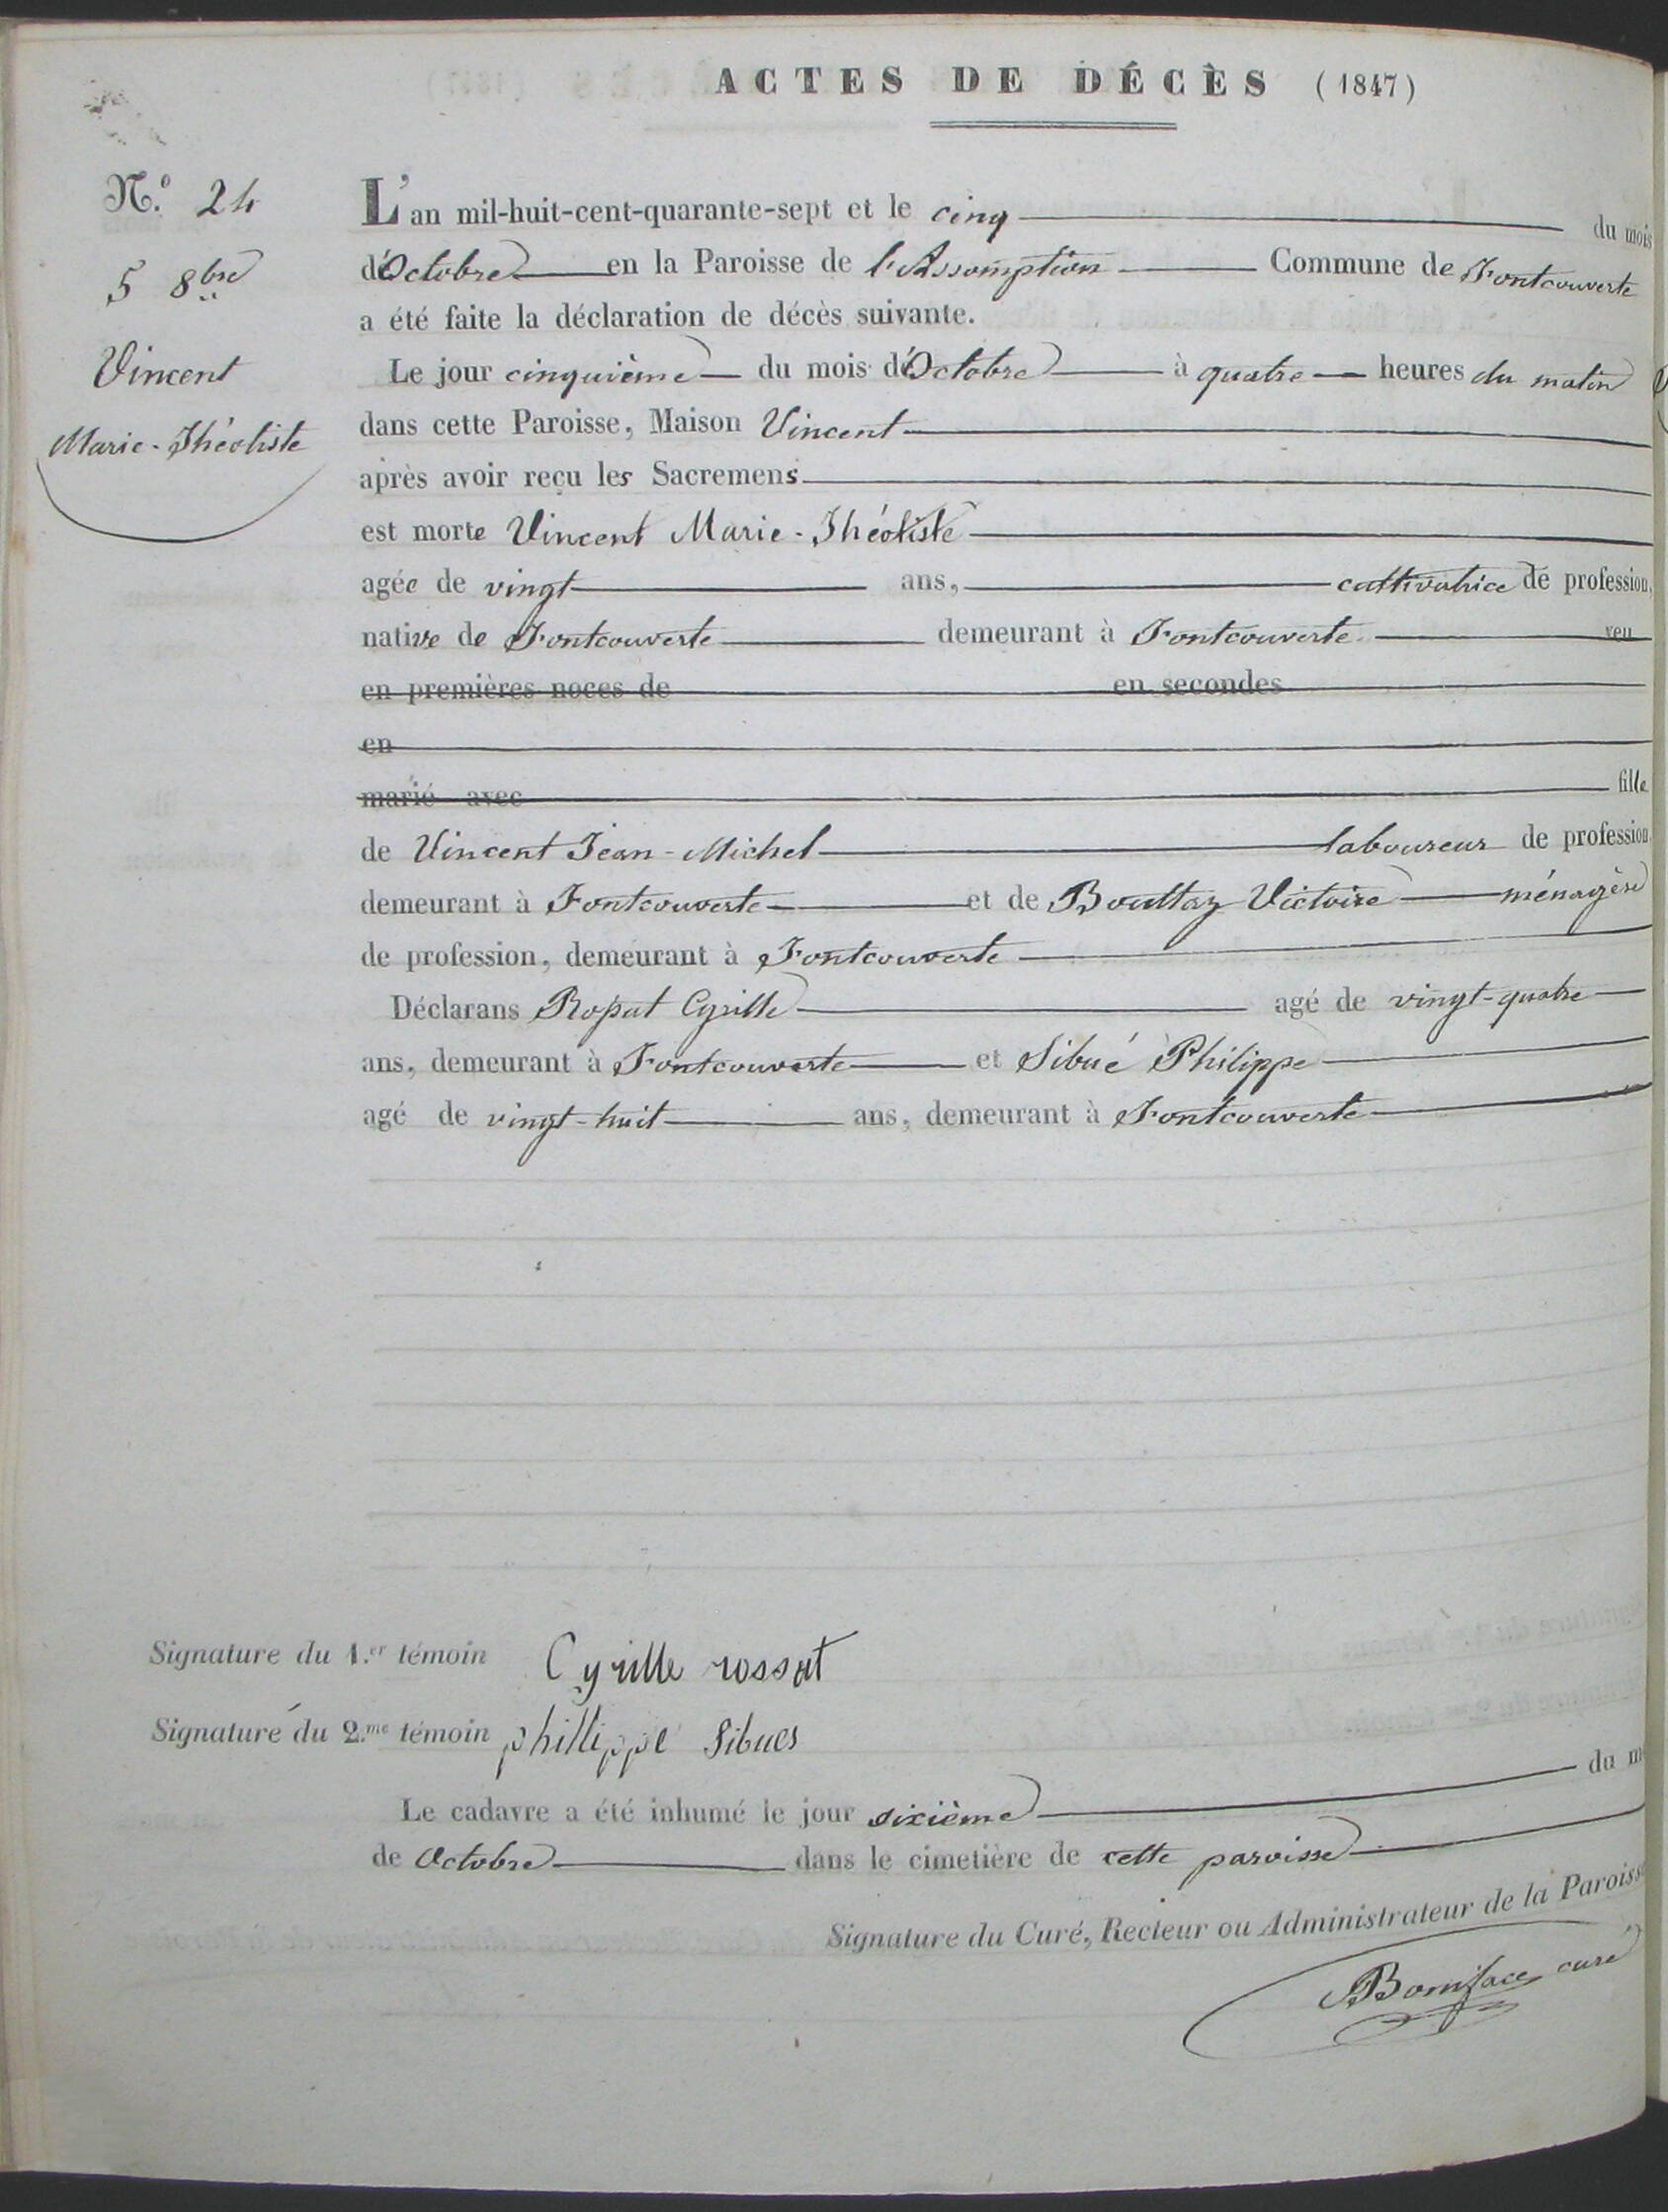 ACTES DE DÉCÈS (1847)
N.º 24
5 8bre
Vincent
Marie-Théotiste
L'an mil-huit-cent-quarante-sept et le cinq du mois
d'Octobre en la Paroisse de l'Assomption Commune de Fontcouverte
a été faite la déclaration de décès suivante.
Le jour cinquième du mois d'Octobre à quatre heures du matin
dans cette Paroisse, Maison Vincent
après avoir reçu les Sacremens
est morte Vincent Marie-Théotiste
agée de vingt ans, cultivatrice de profession,
native de Fontcouverte demeurant à Fontcouverte veu
en premières noces de en secondes
en
marié avec fille
de Vincent Jean-Michel laboureur de profession
demeurant à Fontcouverte et de Bouttaz Victoire ménagère
de profession, demeurant à Fontcouverte
Déclarans Rossat Cyrille agé de vingt-quatre
ans, demeurant à Fontcouverte et Sibué Philippe
agé de vingt-huit ans, demeurant à Fontcouverte
Signature du 1.er témoin Cyrille rossat
Signature du 2.me témoin phillippe Sibues
Le cadavre a été inhumé le jour sixième du m
de Octobre dans le cimetière de cette paroisse
Signature du Curé, Recteur ou Administrateur de la Paroisse
Boniface curé